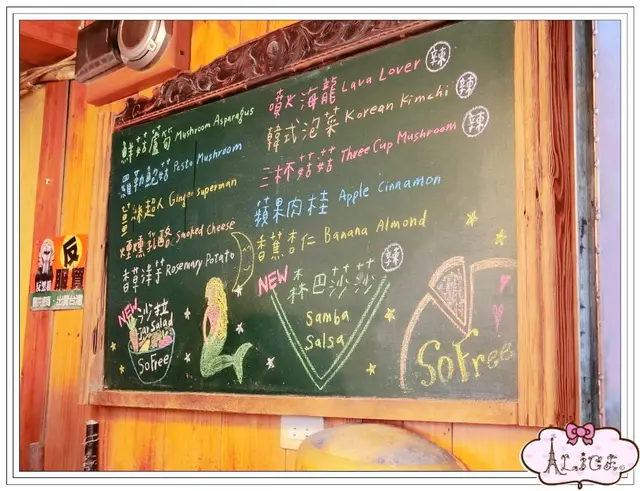 鮮菇蘆筍 Mushroom Asparagus
羅勒鮑菇 Pesto Mushroom
薑冰超人 Ginger superman
煙燻乳酪 Smoked Cheese
香草洋芋 Rosemary Potato
噴火海龍 Lava Lover 辣
韓式泡菜 Korean Kimchi 辣
三杯菇菇 Three Cup Mushroom 辣
蘋果肉桂 Apple Cinnamon
香蕉杏仁 Banana Almond
NEW 森巴沙沙 辣
Samba
Salsa
NEW 沙拉
Jar Salad
SoFree
SoFree
反
服貿
ALICE